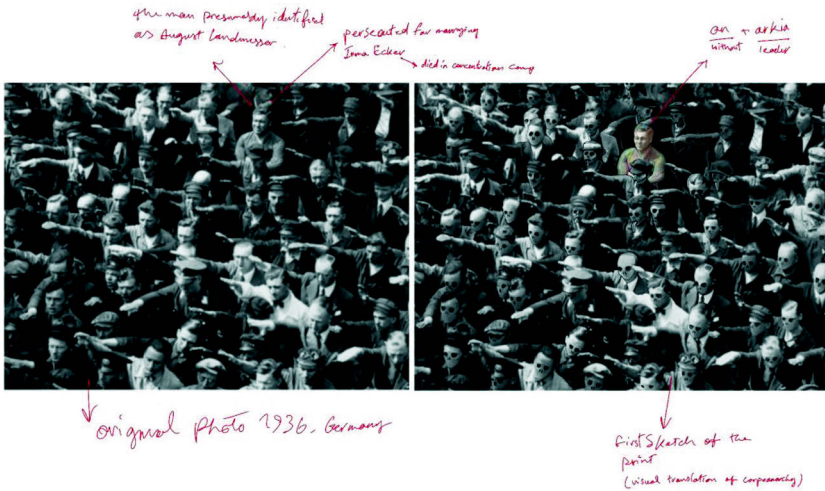 the man presumably identified
as August Landmesser.
persecuted for marrying
Irma Ecker
died in concentration camp
an + arkia
without leader
original photo 1936. Germany
first sketch of the
print
(visual translation of corpomarchy)